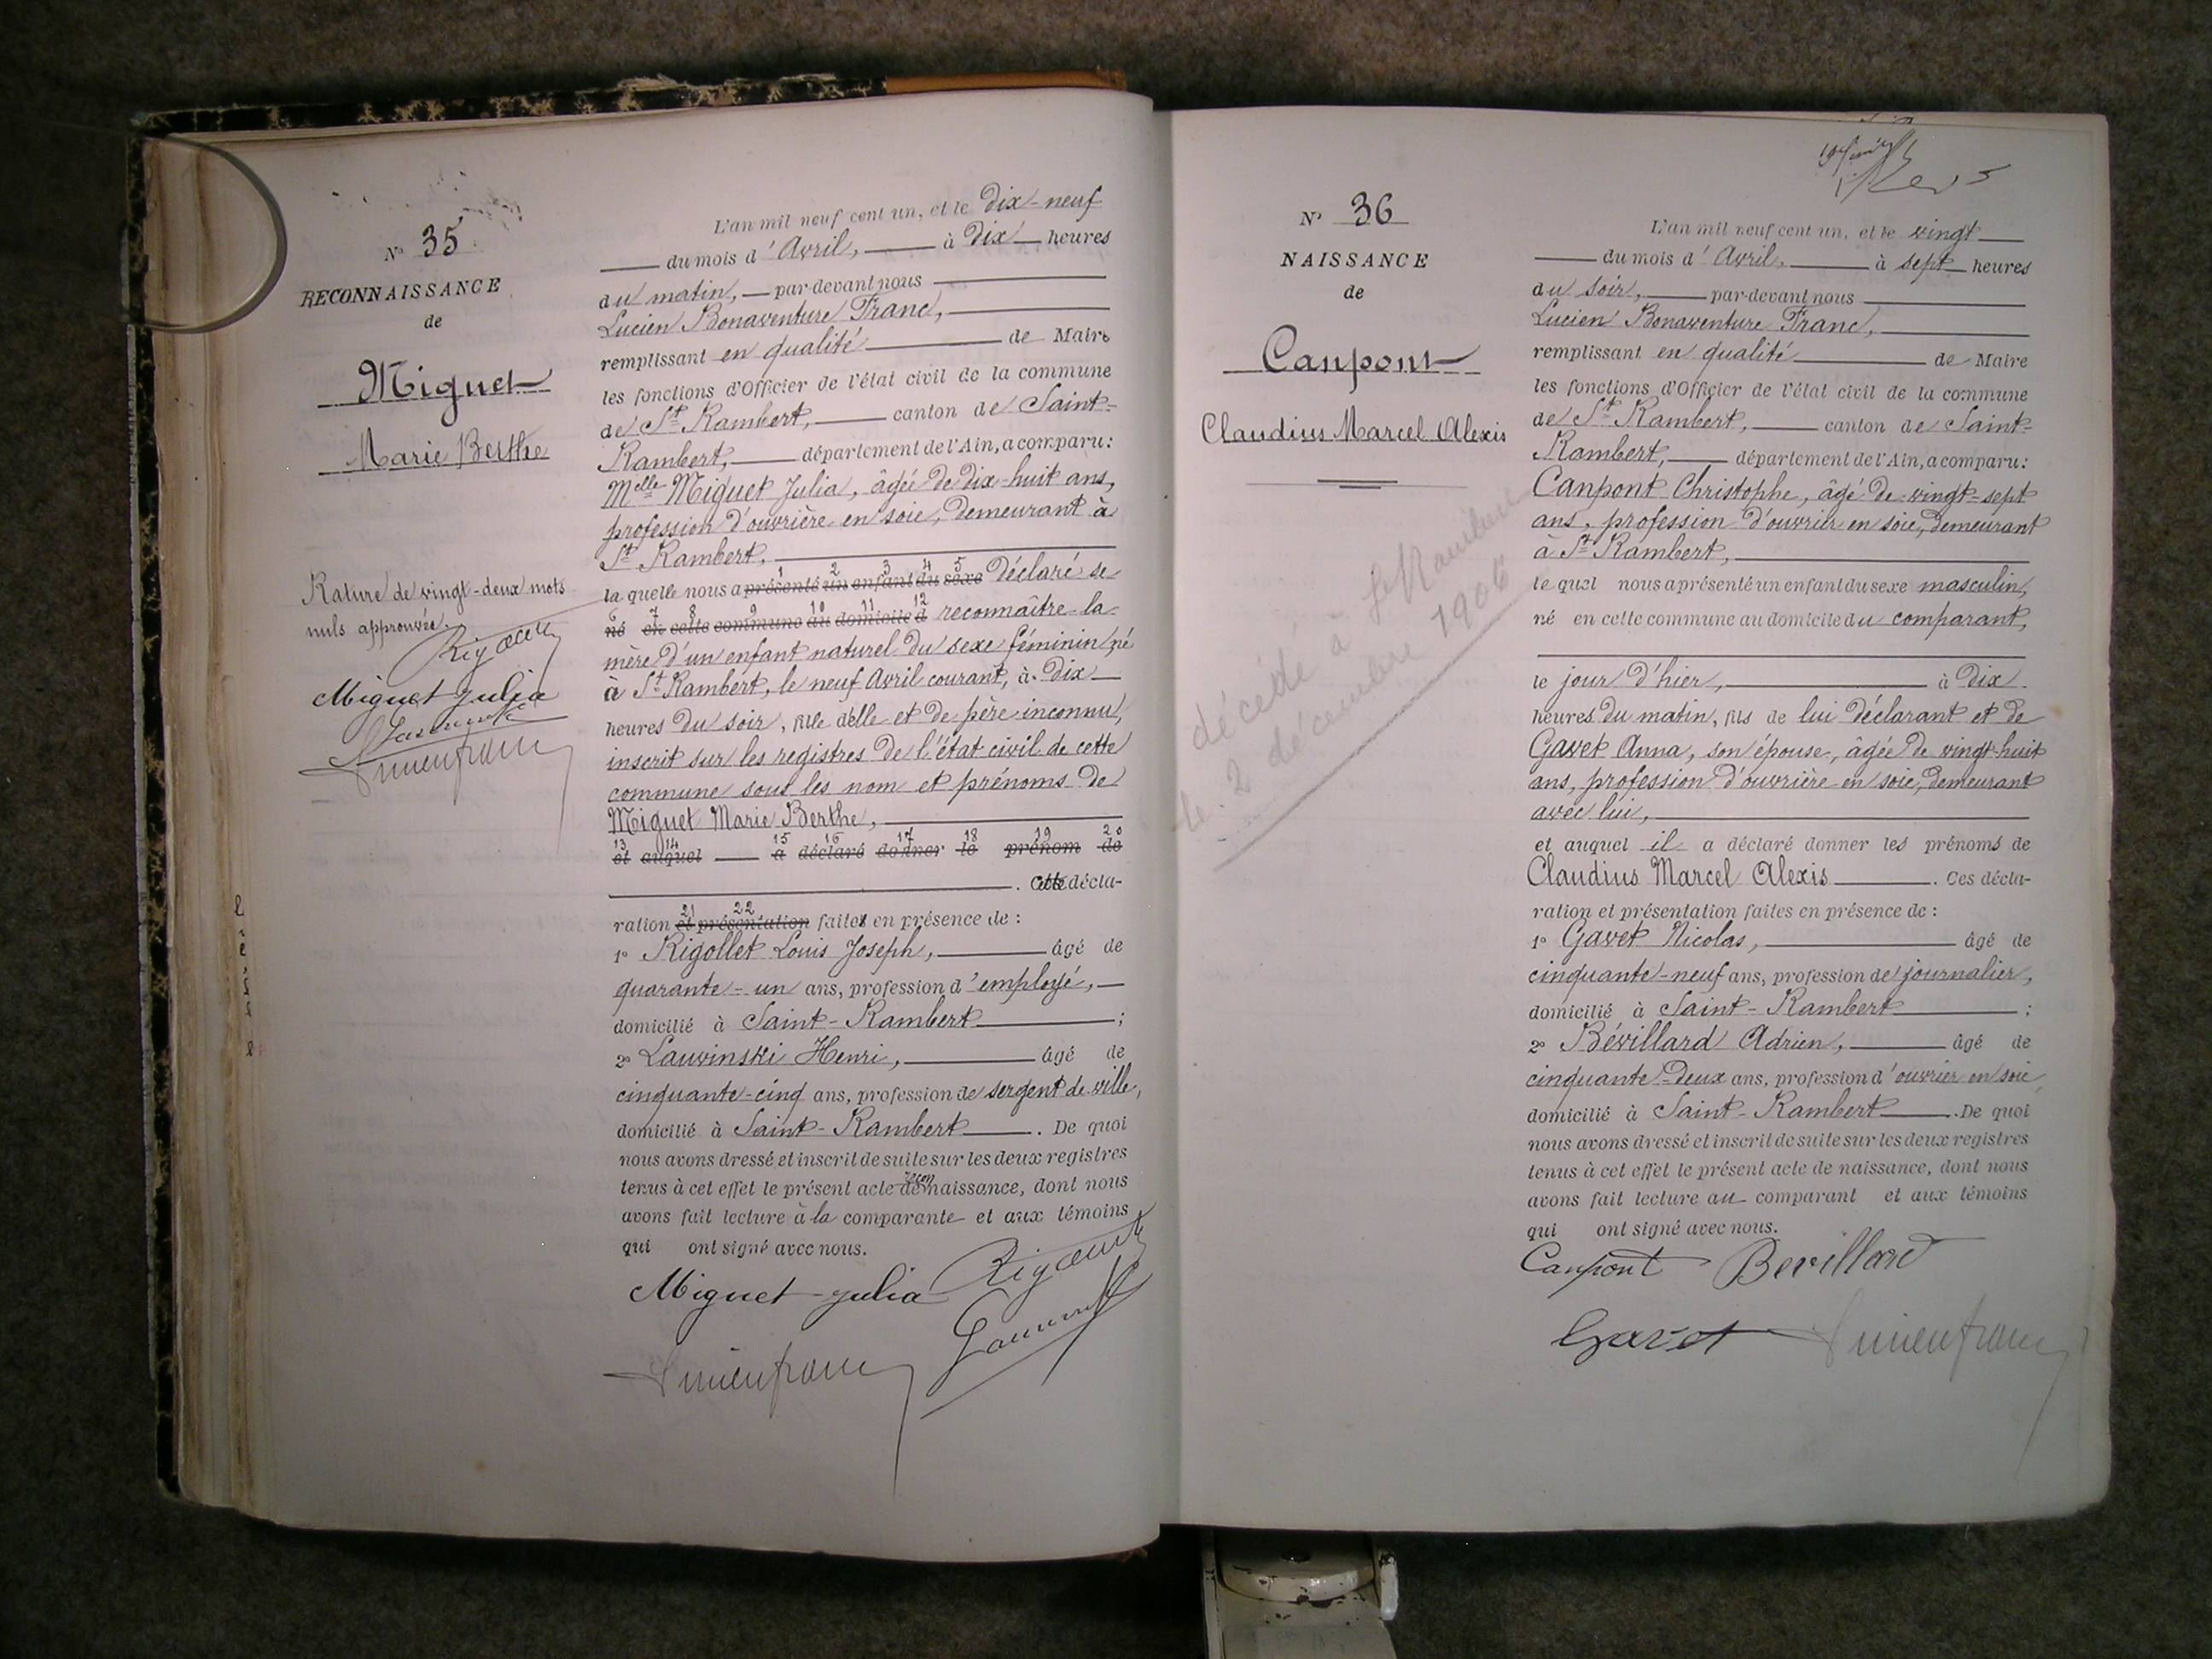 N° 35
RECONNAISSANCE
de
Miguet
Marie Berthe
Rature de vingt-deux mots
nuls approuvée.
Miguet Julia
L'an mil neuf cent un, et le dix-neuf
du mois d'Avril, à Dix heures
du matin, par-devant nous
Lucien Bonaventure Franc,
remplissant en qualité de Maire
les fonctions d'Officier de l'état civil de la commune
de St Rambert, canton de Saint-
Rambert, département de l'Ain, a comparu:
Melle Miguet Julia, âgée de dix-huit ans,
profession d'ouvrière en soie, demeurant à
St Rambert,
1 2 3 4 5
la quelle nous a présenté un enfant du sexe déclaré se
6 7 8 9 10 11 12
né en cette commune au domicile d reconnaître la
mère d'un enfant naturel du sexe féminin, né
à St Rambert, le neuf Avril courant, à Dix
heures du soir, fille d'elle et de père inconnu,
inscrit sur les registres de l'état civil de cette
commune sous les nom et prénoms de
Miguet Marie Berthe,
13 14 15 16 17 18 19 20
et auquel a déclaré donner le prénom de
. Cette décla-
21 22
ration et présentation faite en présence de :
1° Rigollet Louis Joseph, âgé de
quarante-un ans, profession d'employé,
domicilié à Saint-Rambert ;
2° Lauvinski Henri, âgé de
cinquante-cinq ans, profession de sergent de ville,
domicilié à Saint-Rambert . De quoi
nous avons dressé et inscrit de suite sur les deux registres
tenus à cet effet le présent acte de naissance, dont nous
avons fait lecture à la comparante et aux témoins
qui ont signé avec nous.
Miguet Julia
N° 36
NAISSANCE
de
Canpont
Claudius Marcel Alexis
décédé à St Rambert
le 2 décembre 1906
L'an mil neuf cent un, et le vingt
du mois d'Avril, à sept heures
du soir, par-devant nous
Lucien Bonaventure Franc,
remplissant en qualité de Maire
les fonctions d'Officier de l'état civil de la commune
de St Rambert, canton de Saint-
Rambert, département de l'Ain, a comparu:
Canpont Christophe, âgé de vingt-sept
ans, profession d'ouvrier en soie, demeurant
à St Rambert,
le quel nous a présenté un enfant du sexe masculin,
né en cette commune au domicile du comparant,
le jour d'hier, à dix
heures du matin, fils de lui déclarant et de
Gavet Anna, son épouse, âgée de vingt-huit
ans, profession d'ouvrière en soie, demeurant
avec lui,
et auquel il a déclaré donner les prénoms de
Claudius Marcel Alexis . Ces décla-
ration et présentation faites en présence de :
1° Gavet Nicolas, âgé de
cinquante-neuf ans, profession de journalier,
domicilié à Saint-Rambert ;
2° Bévillard Adrien, âgé de
cinquante-deux ans, profession d'ouvrier en soie,
domicilié à Saint-Rambert . De quoi
nous avons dressé et inscrit de suite sur les deux registres
tenus à cet effet le présent acte de naissance, dont nous
avons fait lecture au comparant et aux témoins
qui ont signé avec nous.
Canpont Bevillard
Gavet Lucien franc